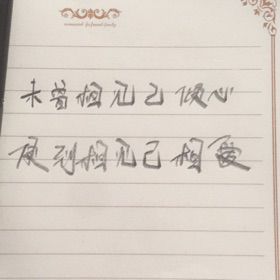 未曾相见已倾心
及到相见已相爱